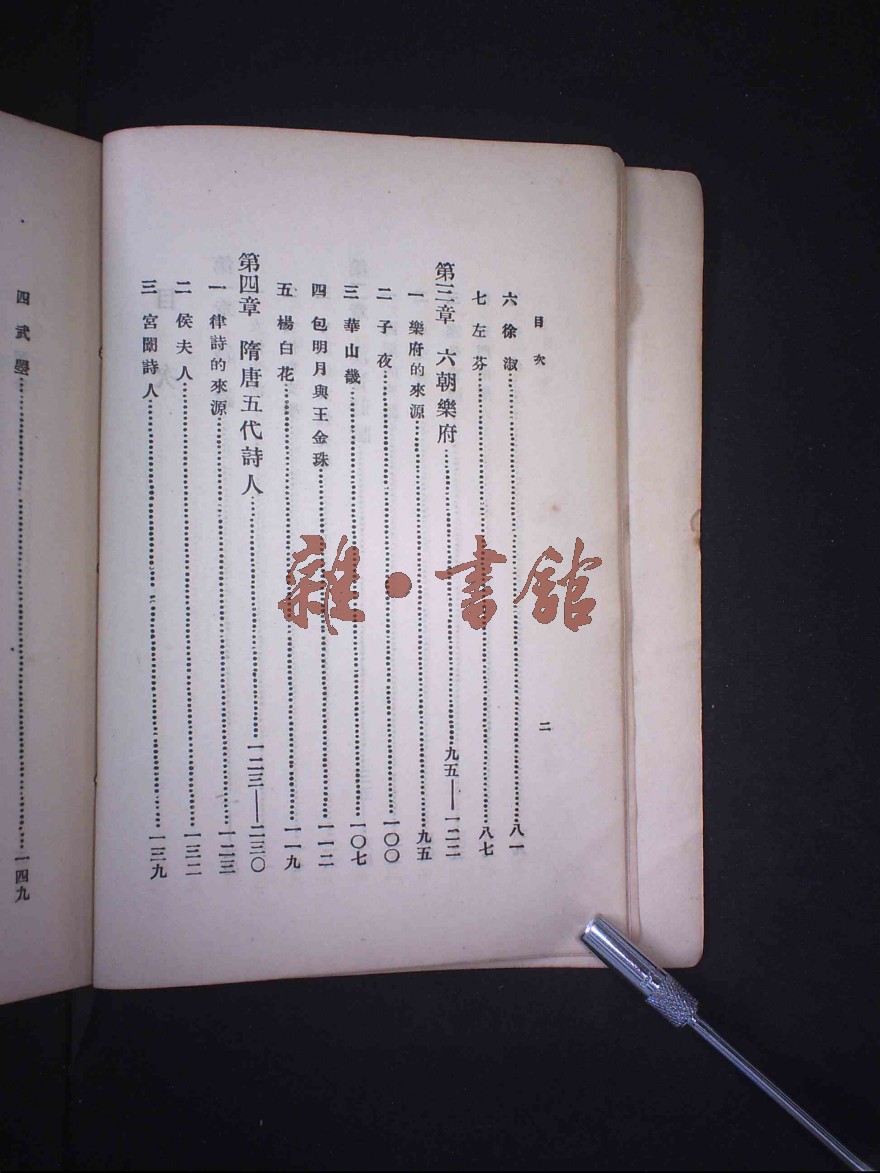 目次
二
六 徐淑……八一
七 左芬……八七
第三章 六朝樂府……九五——一二二
一 樂府的來源……九五
二 子夜……一〇〇
三 華山畿……一〇七
四 包明月與王金珠……一一二
五 楊白花……一一九
第四章 隋唐五代詩人……一二三——二三〇
一 律詩的來源……一二三
二 侯夫人……一三二
三 宮闈詩人……一三九
四 武曌……一四九
雜·書館